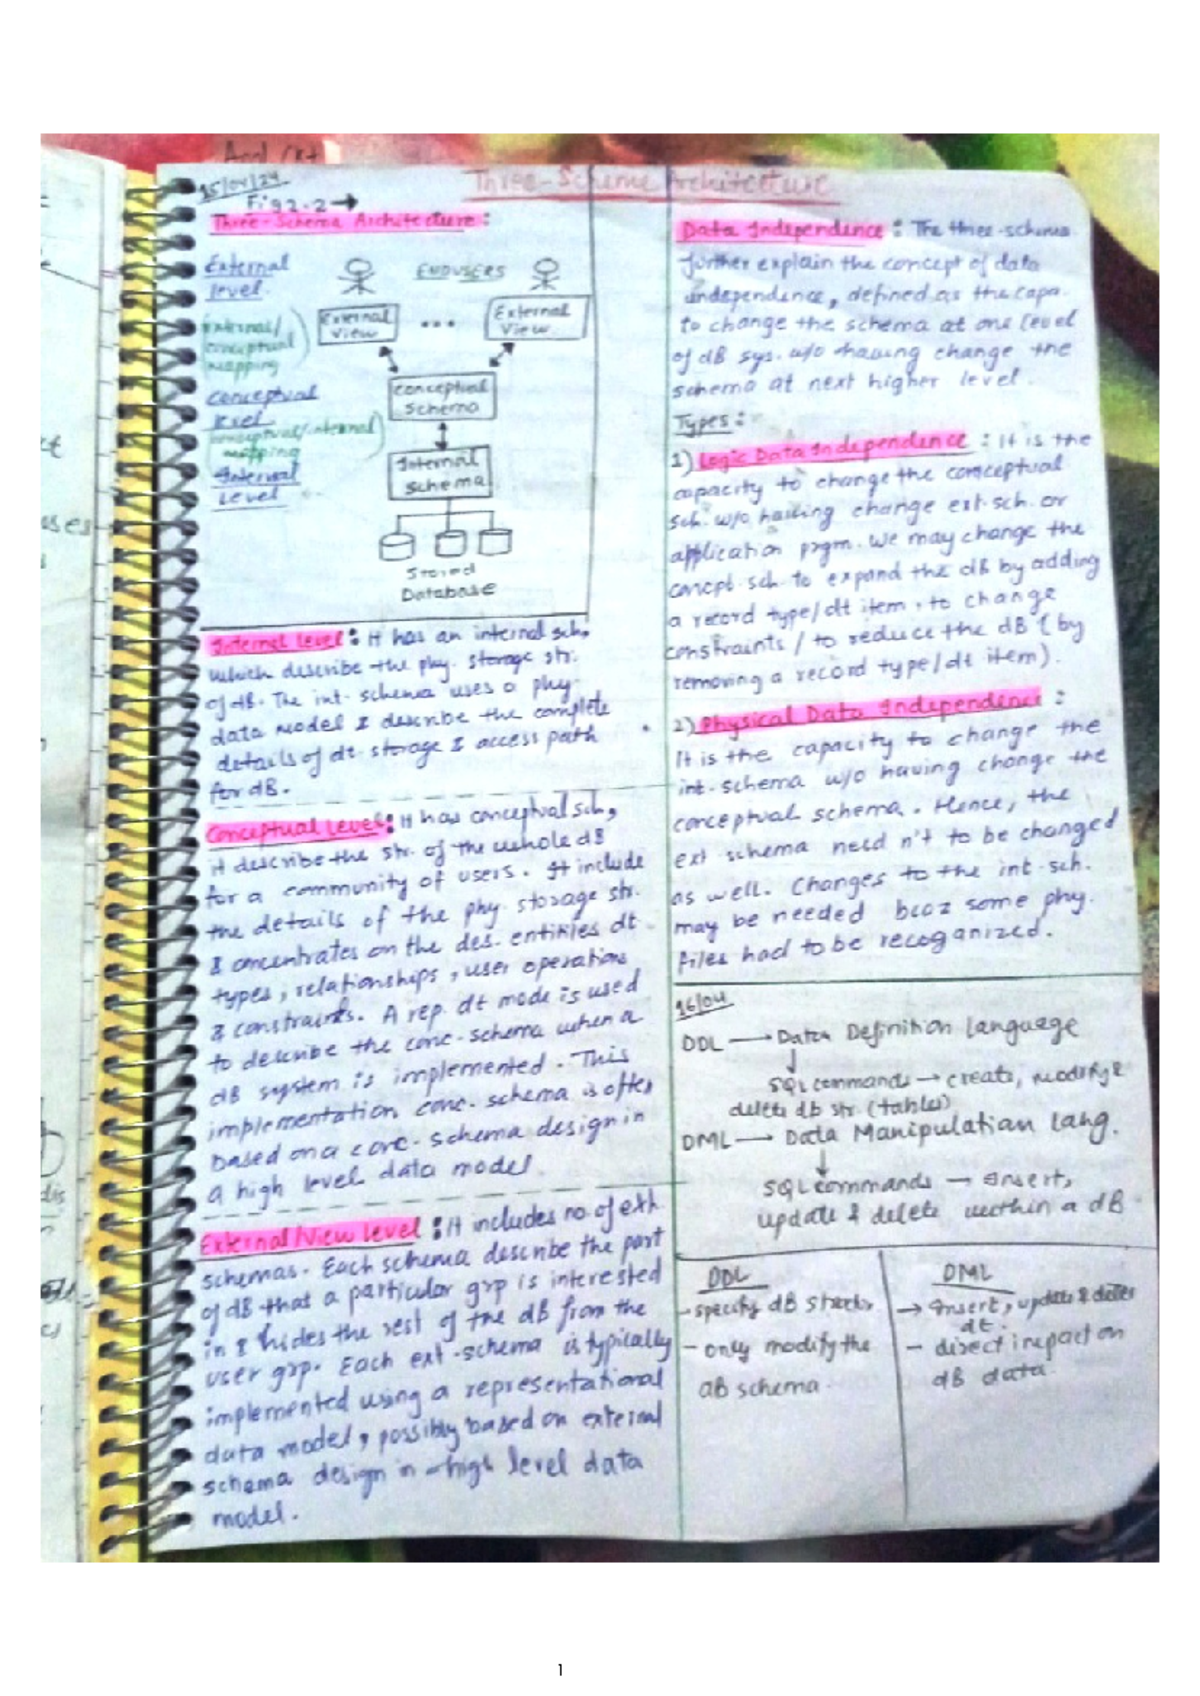 Three-Scheme Architecture
15/04/24
Fig 2.2 →
Three-Schema Architecture:
External level
ENDUSERS
External View
...
External View
External/conceptual mapping
Conceptual level
Conceptual Schema
conceptual/internal mapping
Internal Level
Internal Schema
Stored Database
Internal level: It has an internal sch,
which describe the phy. storage str.
of dB. The int. schema uses a phy.
data model & describe the complete
details of dt. storage & access path
for dB.
Conceptual Level: It has conceptual sch,
it describe the str. of the whole dB
for a community of users. It include
the details of the phy. storage str.
& concentrates on the des. entities dt.
types, relationships, user operations
& constraints. A rep. dt mode is used
to describe the conc. schema when a
dB system is implemented. This
implementation conc. schema is often
based on a conc. schema design in
a high level data model.
External/View level: It includes no. of ext.
schemas. Each schema describe the part
of dB that a particular grp is interested
in & hides the rest of the dB from the
user grp. Each ext. schema is typically
implemented using a representational
data model, possibly based on external
schema design in high level data
model.
Data Independence: The three-schema
further explain the concept of data
independence, defined as the capa.
to change the schema at one level
of dB sys. w/o having change the
schema at next higher level.
Types:
1) Logic Data Independence: It is the
capacity to change the conceptual
sch. w/o having change ext. sch. or
application prgm. We may change the
concpt. sch. to expand the dB by adding
a record type/dt item, to change
constraints / to reduce the dB (by
removing a record type/dt item).
2) Physical Data Independence:
It is the capacity to change the
int. schema w/o having change the
conceptual schema. Hence, the
ext schema need n't to be changed
as well. Changes to the int. sch.
may be needed bcoz some phy.
files had to be recoganized.
16/04
DDL → Data Definition language
↓
SQL commands → create, modify &
delete db str. (tables)
DML → Data Manipulation lang.
↓
SQL commands → Insert,
update & delete within a dB
DDL
- specify dB
- only modify the
dB schema.
DML
→ Insert, update & delete
dt.
- direct impact on
dB data.
1